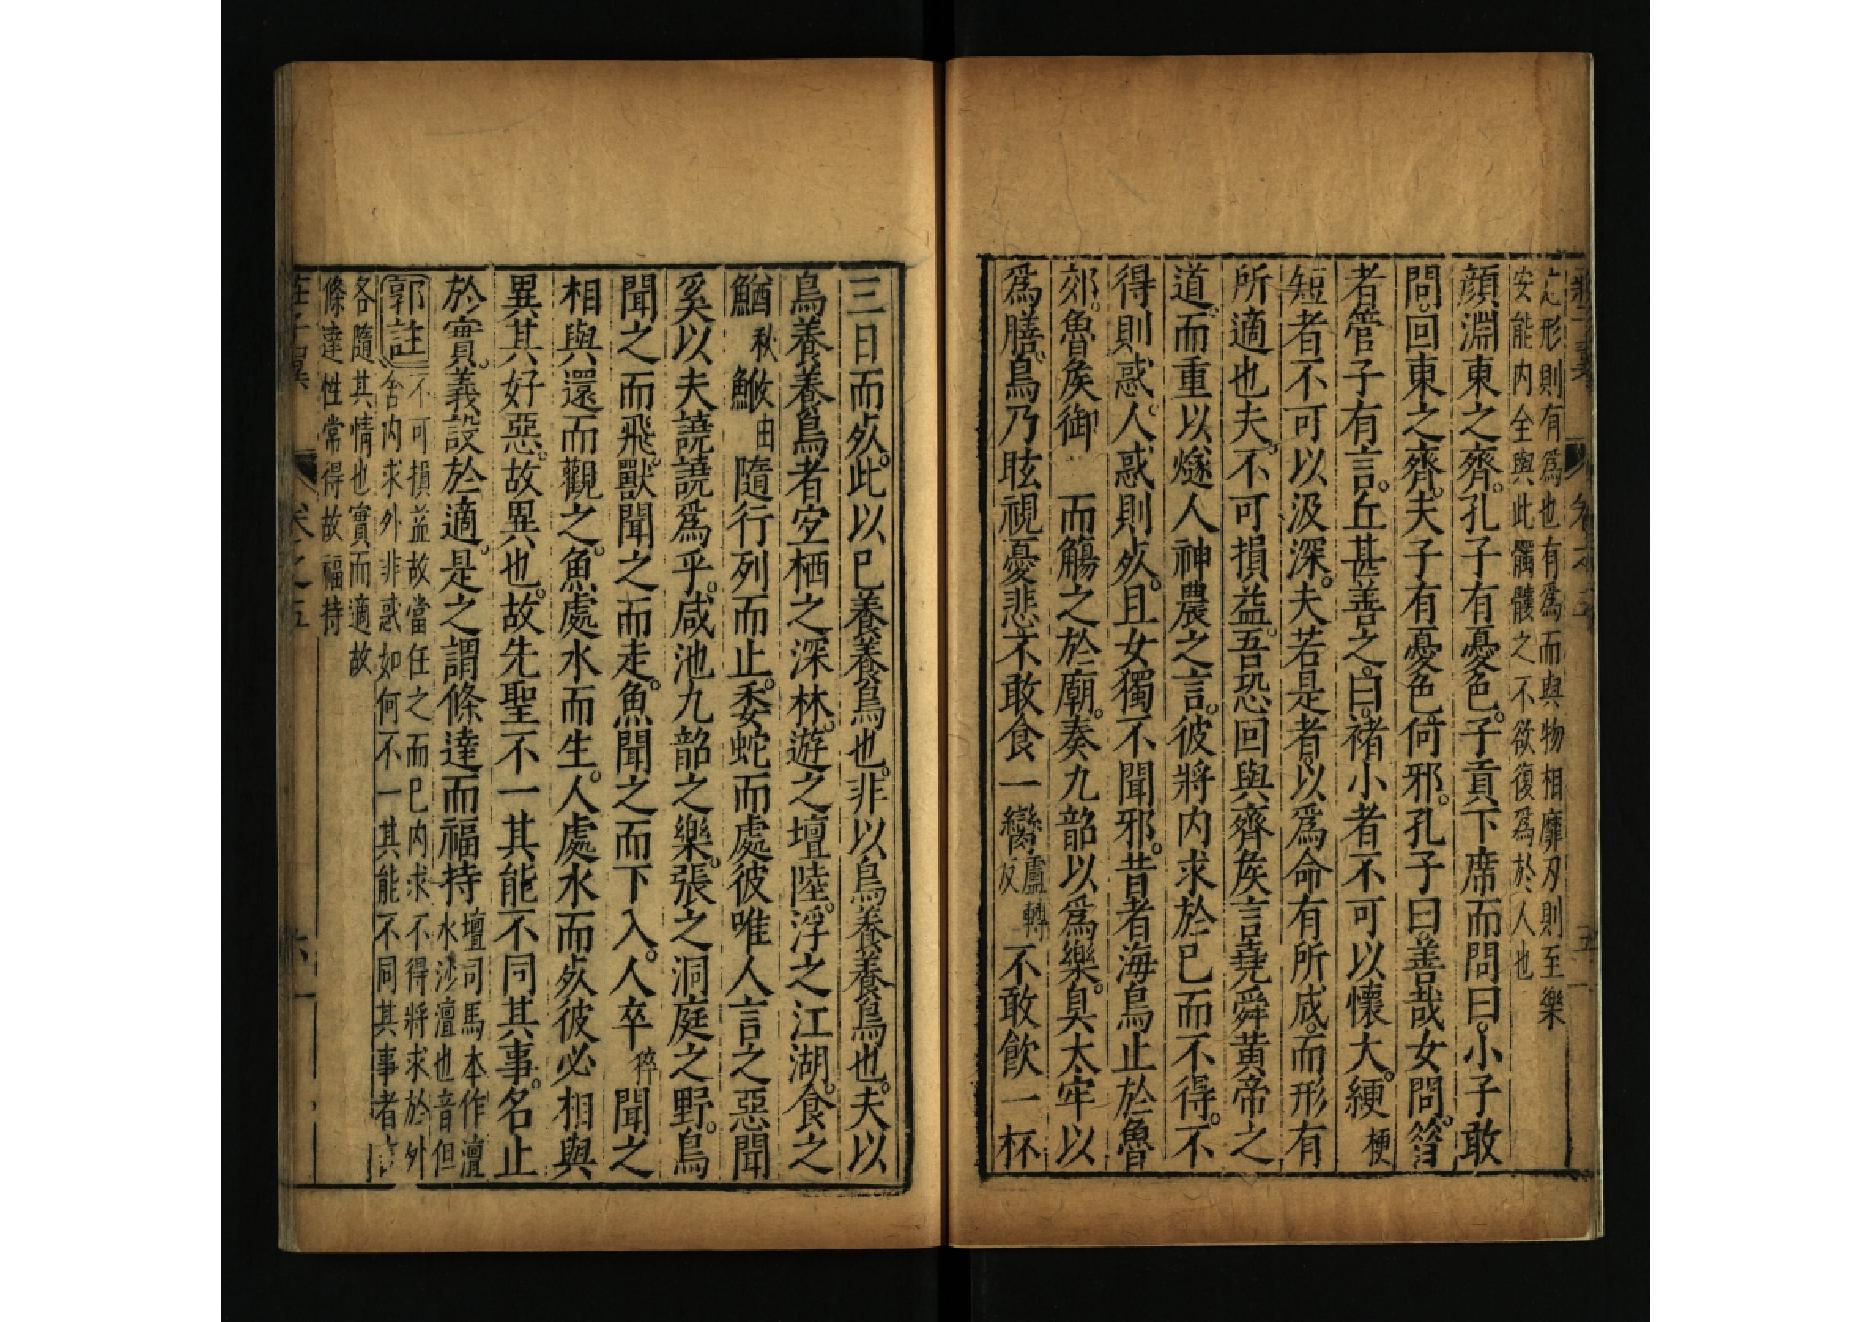 之形則有爲也有爲而與物相靡刃則至樂
安能内全與此髑髏之不欲復爲於人也
顔淵東之齊。孔子有憂色。子貢下席而問曰。小子敢
問。回東之齊。夫子有憂色。何邪。孔子曰。善哉女問。昝
者管子有言。丘甚善之。曰。褚小者不可以懷大。綆梗
短者不可以汲深。夫若是者。以爲命有所成。而形有
所適也夫。不可損益。吾恐回與齊矦言堯舜黄帝之
道。而重以燧人神農之言。彼將内求於巳而不得。不
得則惑。人惑則㱙。且女獨不聞邪。昔者海鳥止於魯
郊。魯矦御而觴之於廟。奏九韶以爲樂。具太牢以
爲膳。鳥乃眩視憂悲。不敢食一臠盧轉反不敢飲一杯
三日而㱙。此以巳養養鳥也。非以鳥養養鳥也。夫以
鳥養養鳥者。宜栖之深林。遊之壇陸。浮之江湖。食之
鰌秋鮍由隨行列而止。委蛇而處。彼唯人言之惡聞
奚以夫譊譊爲乎。咸池九韶之樂。張之洞庭之野。鳥
聞之而飛。獸聞之而走。魚聞之而下入。人卒稡聞之
相與還而觀之。魚處水而生。人處水而㱙。彼必相與
異其好惡。故異也。故先聖不一其能。不同其事。名止
於實。義設於適。是之謂條達而福持壇司馬本作澶
水沙澶也音但
郭註 不可損益故當任之而巳内求不得將求於外
舍内求外非惑如何不一其能不同其事者言
各隨其情也實而適故
條達性常得故福持
莊子翼 卷之五 六